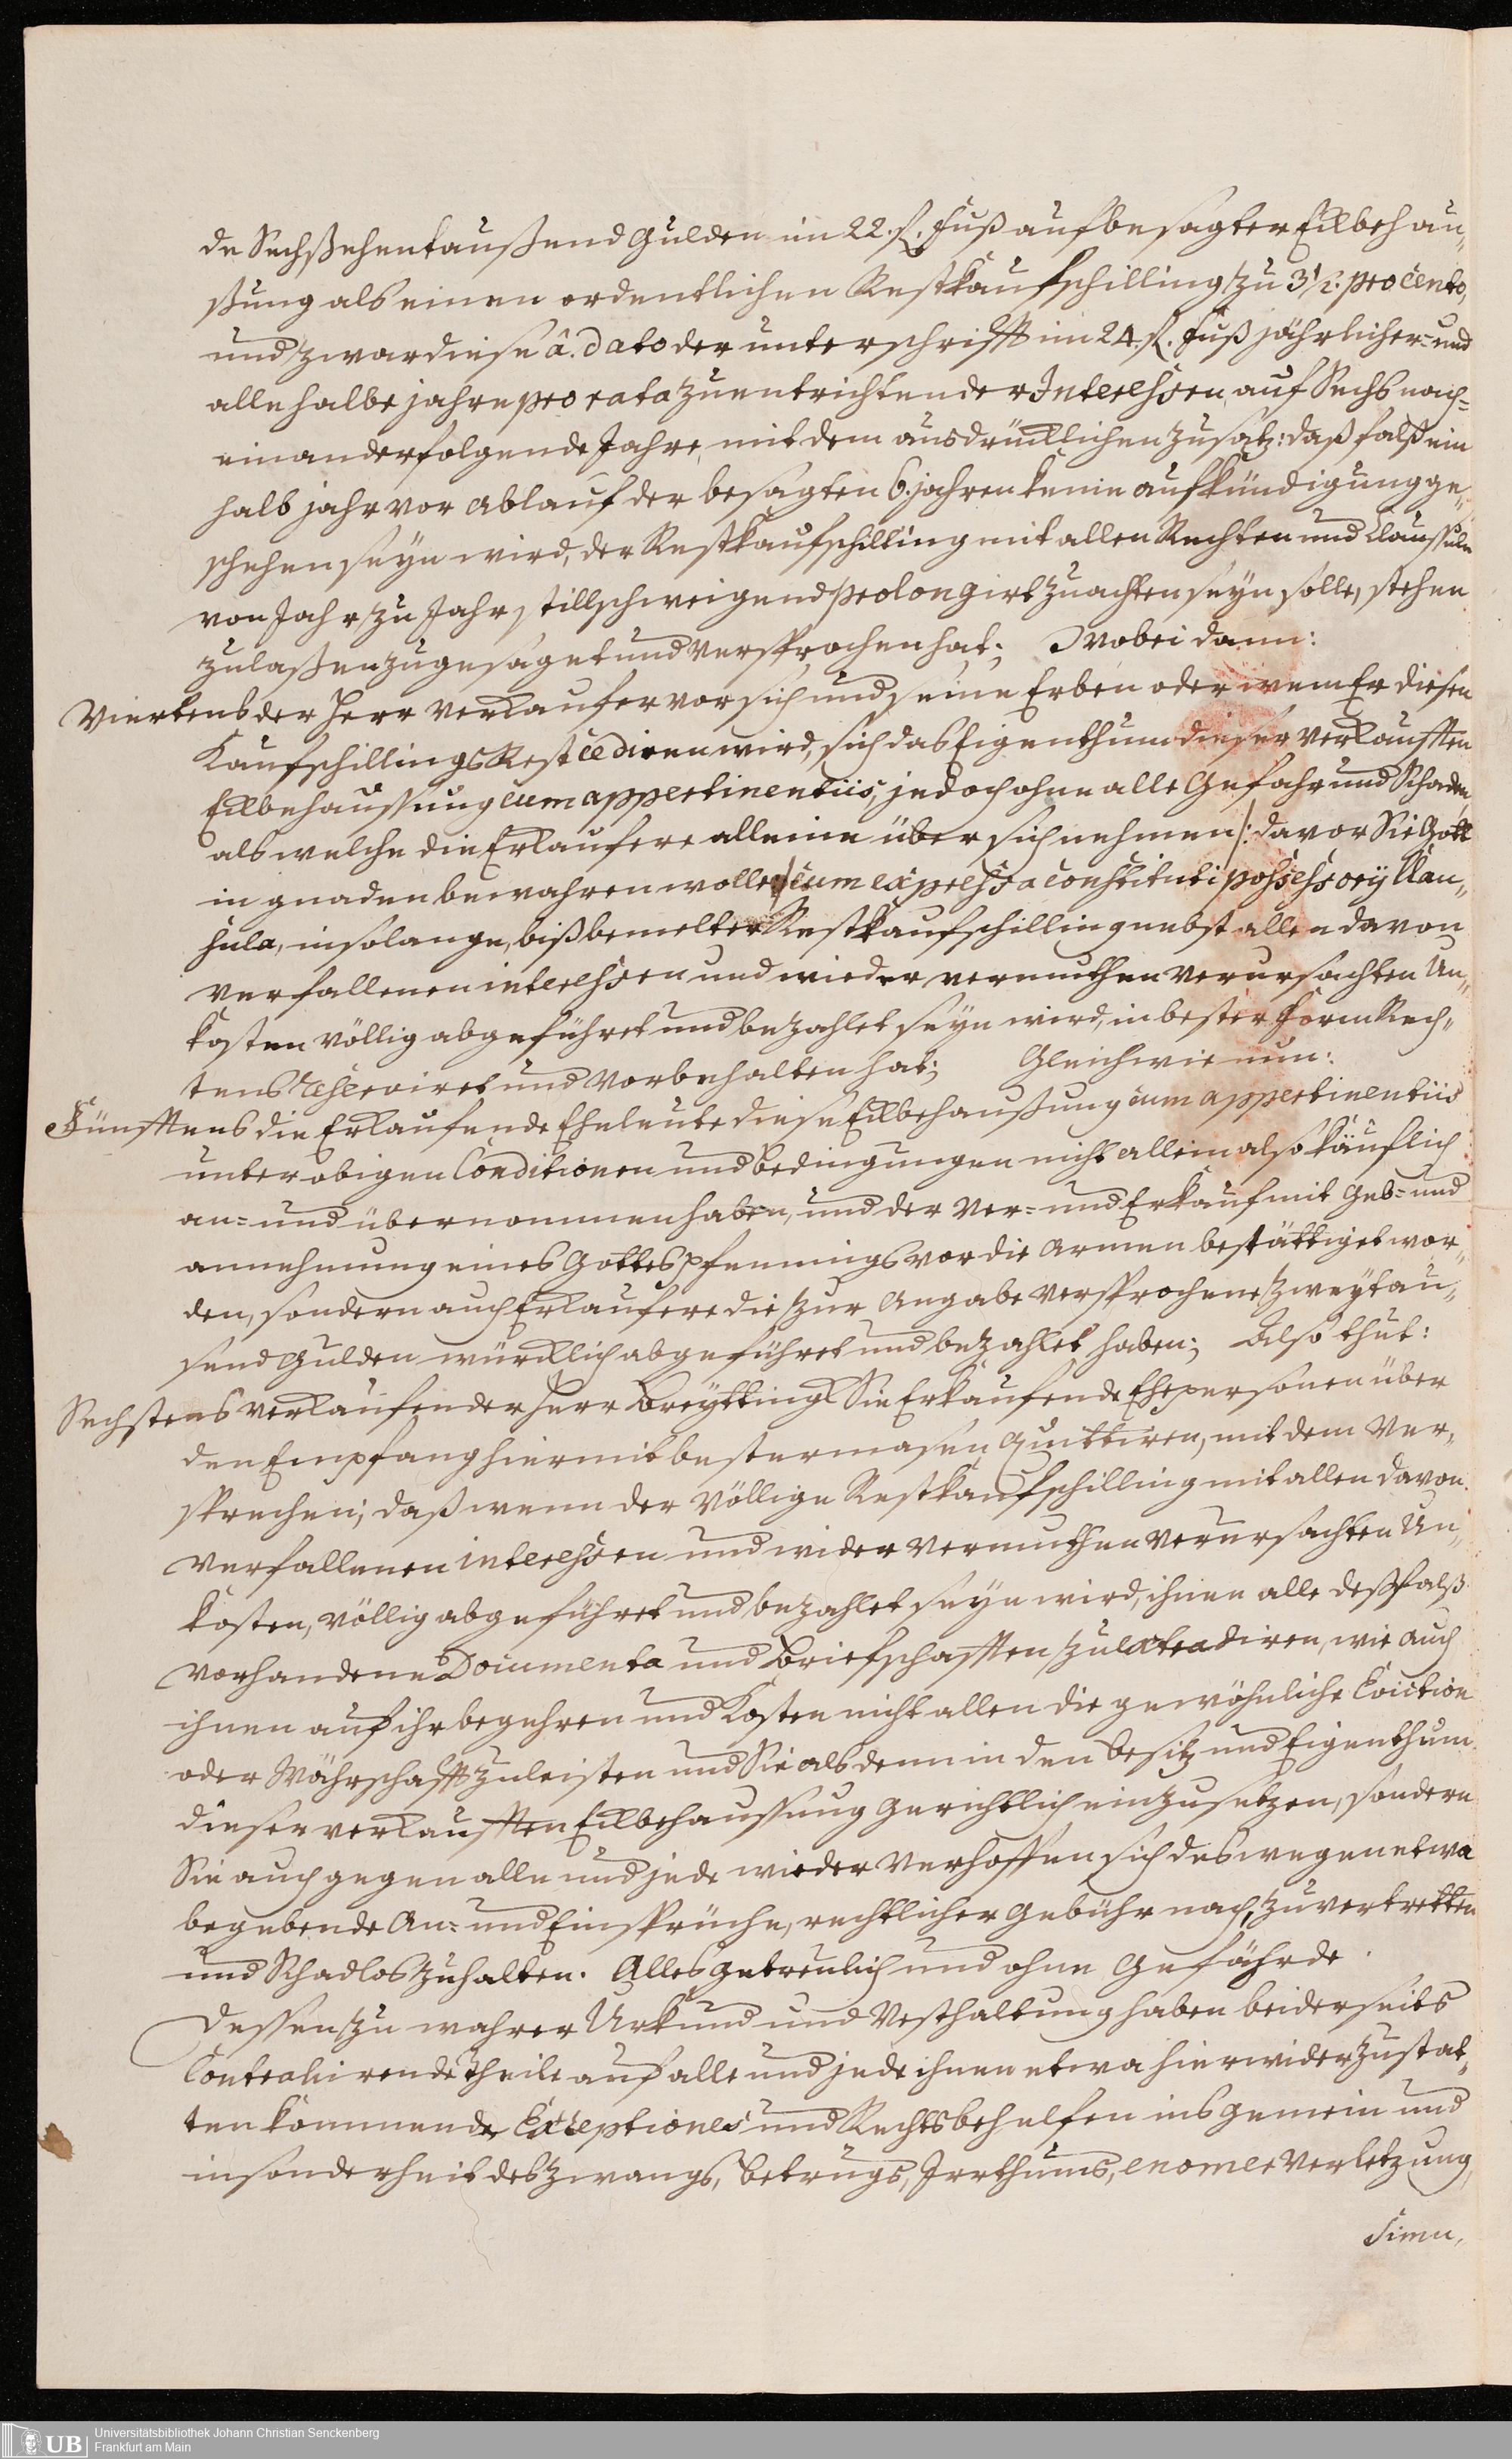 de Sechßehentaußend Gulden im 22. fl. Fuß auf besagter Eckbehau„
ßung als einen ordentlichen Restkaufschilling zu 3 1/2. pro Cento,
und zwar diese â. dato der unterschrifft im 24. fl. Fuß jährlicher- und
alle halbe jahre pro rata zu entrichtender Interessen, auf Sechs nach=
einander folgende Jahre, mit dem ausdrücklichen zusatz: daß falß ein
halb jahr vor ablauf der besagten 6. jahren keine aufkündigung ge„
schehen seyn wird, der Restkaufschilling mit allen Rechten und Clausuln
von Jahr zu Jahr stillschweigend prolongirt zu achten seyn solle, stehen
zulaßen zugesaget und versprochen hat; Wobei dann:
Viertens der Herr verkaufer vor sich und seine Erben oder wem Er diesen
Kaufschillings Rest cediren wird, sich das Eigenthum dieser verkaufften
Eckbehaussung cum appertinentiis, jedoch ohne alle Gefahr und Schaden,
als welche die Erkaufere alleine über sich nehmen /: davor Sie Gott
in gnaden bewahren wolle :/ cum expressa constituti possessorij Clau„
sula, insolange, biß bemelter Restkaufschilling nebst allen davon
verfallenen interessen und wieder vermuthen verursachten Un„
kosten völlig abgeführet und bezahlet seyn wird, in bester Form Rech„
tens reserviret und vorbehalten hat; Gleichwie nun:
Fünfftens die Erkaufende Eheleute diese Eckbehaußung cum appertinentiis
unter obigen Conditionen und bedingungen nicht allein also käuflich
an= und übernommen haben, und der Ver= und Erkauf mit Geb= und
annehmung eines Gottespfennings vor die Armen bestättiget wor„
den, sondern auch Erkaufere die zur Angabe versprochene Zweytau„
send Gulden würcklich abgeführet und bezahlet haben; Also thut:
Sechstens verkaufender Herr Breytting Sie Erkaufende Ehepersonen über
den Empfang hiermit bestermasen Quittiren, mit dem Ver„
sprechen; daß wenn der völlige Restkaufschilling mit allen davon
verfallenen interessen und wider vermuthen verursachten Un„
kosten, völlig abgeführet und bezahlet seyn wird, ihnen alle deßfalß
vorhandene Documenta und Briefschafften zu extradiren, wie auch
ihnen auf ihr begehren und Kosten nicht allen die gewöhnliche Eviction
oder Währschafft zu leisten und Sie alsdenn in den besitz und Eigenthum
dieser verkaufften Eckbehaussung gerichtlich einzusetzen, sondern
Sie auch gegen alle und jede wieder verhoffen sich deswegen etwa
begebende An= und Einsprüche, rechtlicher Gebühr nach, zu vertretten
und Schadlos zu halten. Alles getreulich und ohne Gefährde.
Dessen zu wahrer Urkund und Vesthaltung haben beiderseits
Contrahirende Theile auf alle und jede ihnen etwa hierwider zustat„
ten kommende Exceptiones und Rechtsbehelfen insgemein und
insonderheit des Zwangs, Betrugs, Irrthums, enormer Verletzung,
Simu„
Universitätsbibliothek Johann Christian Senckenberg
Frankfurt am Main
UB